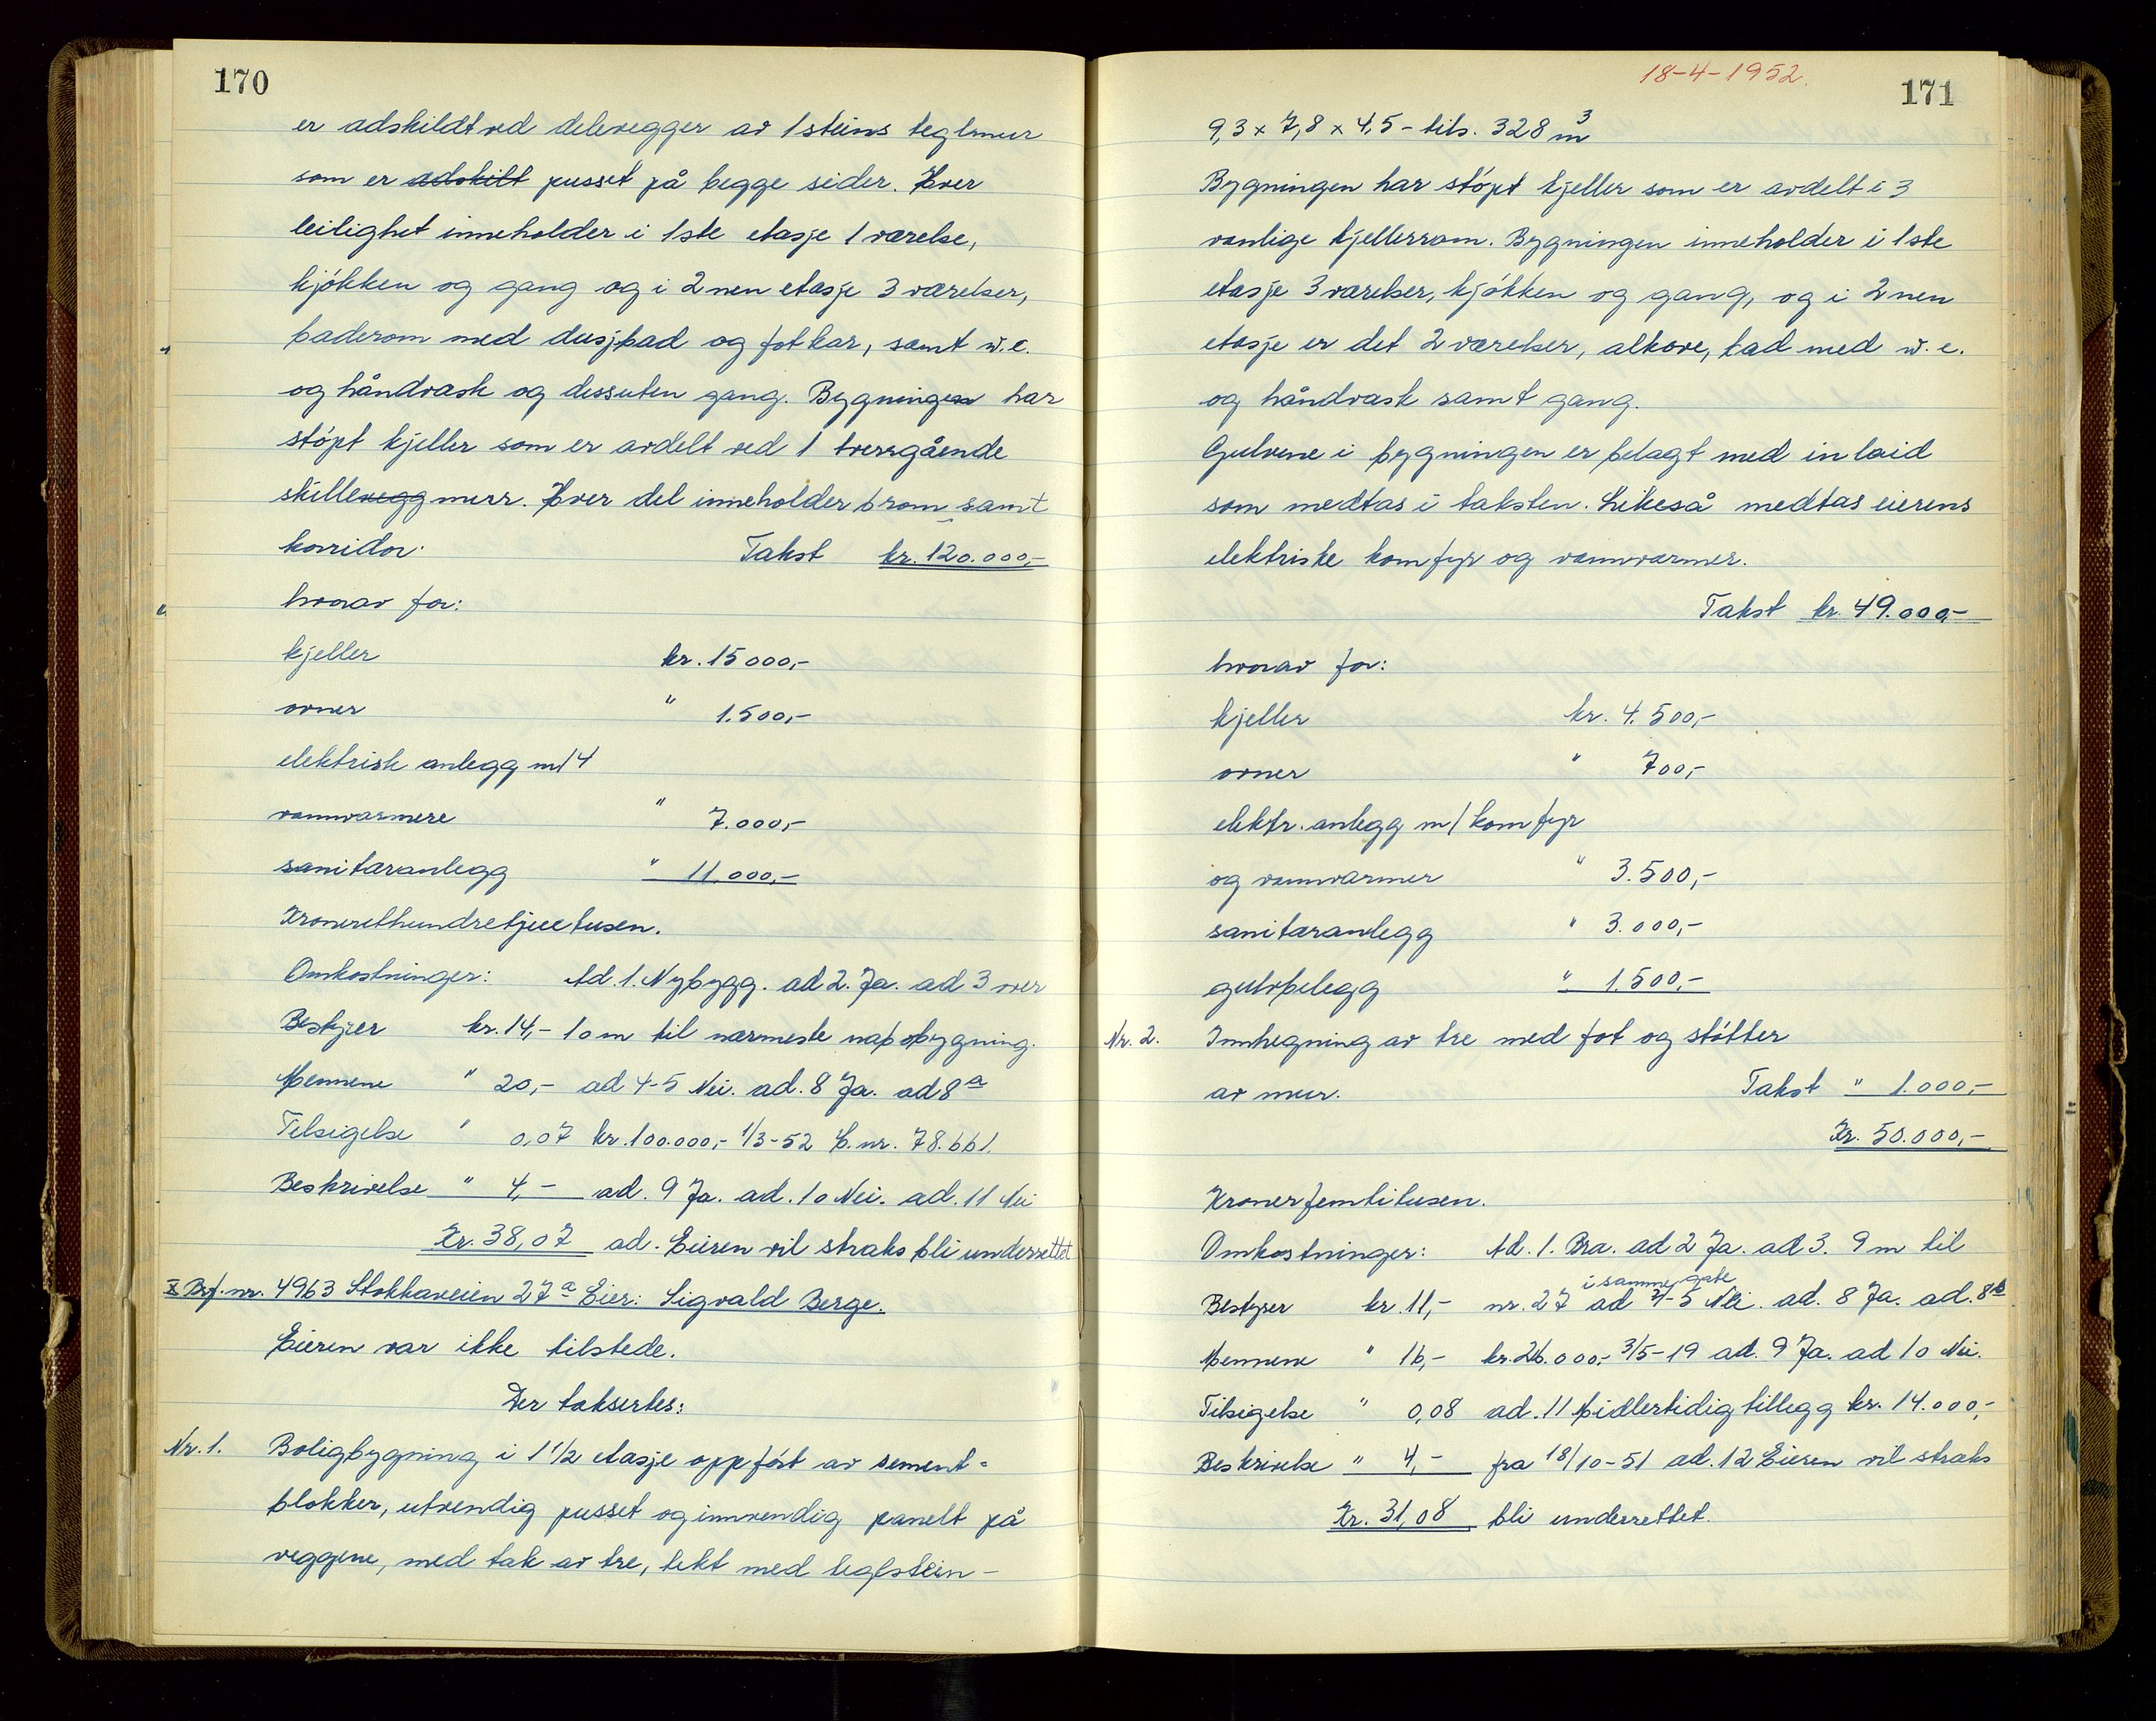 170
er adskildt ved delevegger av 1 steins teglmur
som er adskilt pusset på begge sider. Hver
leilighet inneholder i 1ste etasje 1 værelse,
kjøkken og gang og i 2nen etasje 3 værelser,
baderom med dusjbad og fotkar, samt w.c.
og håndvask og dessuten gang. Bygningen har
støpt kjeller som er avdelt ved 1 tverrgående
skillevegg murr. Hver del inneholder 6 rom samt
korridor. Takst kr. 120.000,-
hvorav for:
kjeller kr. 15000,-
ovner " 1.500,-
elektrisk anlegg m/4
vannvarmere " 7.000,-
sanitæranlegg " 11.000,-
Kronerethundretjuetusen.
Omkostninger: Ad. 1. Nybygg. ad 2. Ja. ad 3 over
Bestyrer kr. 14,- 10 m til nærmeste nabobygning.
Mennene " 20,- ad 4-5 Nei. ad. 8 Ja. ad 8a
Tilsigelse " 0,07 kr. 100.000,- 1/3-52 B.nr. 78.661.
Beskrivelse " 4,- ad. 9 Ja. ad. 10 Nei. ad. 11 Nei
Kr. 38,07 ad. Eieren vil straks bli underrettet
X Brf. nr. 4963 Stokkaveien 27a Eier: Sigvald Berge.
Eieren var ikke tilstede.
Der taksertes:
Nr. 1. Boligbygning i 1 1/2 etasje oppført av sement-
blokker, utvendig pusset og innvendig panelt på
veggene, med tak av tre, tekt med teglstein-
18-4-1952.
171
9,3 x 7,8 x 4,5 - tils. 328 m3
Bygningen har støpt kjeller som er avdelt i 3
vanlige kjellerrom. Bygningen inneholder i 1ste
etasje 3 værelser, kjøkken og gang, og i 2nen
etasje er det 2 værelser, alkove, bad med w.c.
og håndvask samt gang.
Gulvene i bygningen er belagt med inlaid
som medtas i taksten. Likeså medtas eierens
elektriske komfyr og vannvarmer.
Takst kr. 49.000,-
hvorav for:
kjeller kr. 4.500,-
ovner " 700,-
elektr. anlegg m/ komfyr
og vannvarmer " 3.500,-
sanitæranlegg " 3.000,-
gulvbelegg " 1.500,-
Nr. 2. Innhegning av tre med fot og støtter
av mur. Takst " 1.000,-
Kr. 50.000,-
Kronerfemtitusen.
Omkostninger: Ad. 1. Bra. ad 2 Ja. ad 3. 9 m til
i samme gate
Bestyrer kr. 11,- nr. 27 ad 4-5 Nei. ad. 8 Ja. ad. 8b
Mennene " 16,- kr. 26.000,- 3/5-19 ad. 9 Ja. ad 10 Nei.
Tilsigelse " 0,08 ad. 11 Midlertidig tillegg kr. 14.000,-
Beskrivelse " 4,- fra 18/10-51 ad. 12 Eieren vil straks
Kr. 31,08 bli underrettet.